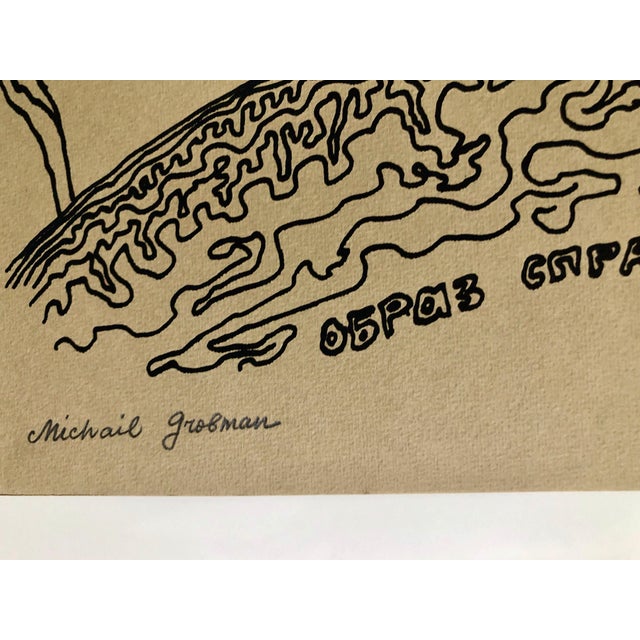 ОБРАЗ
Michail Grobman